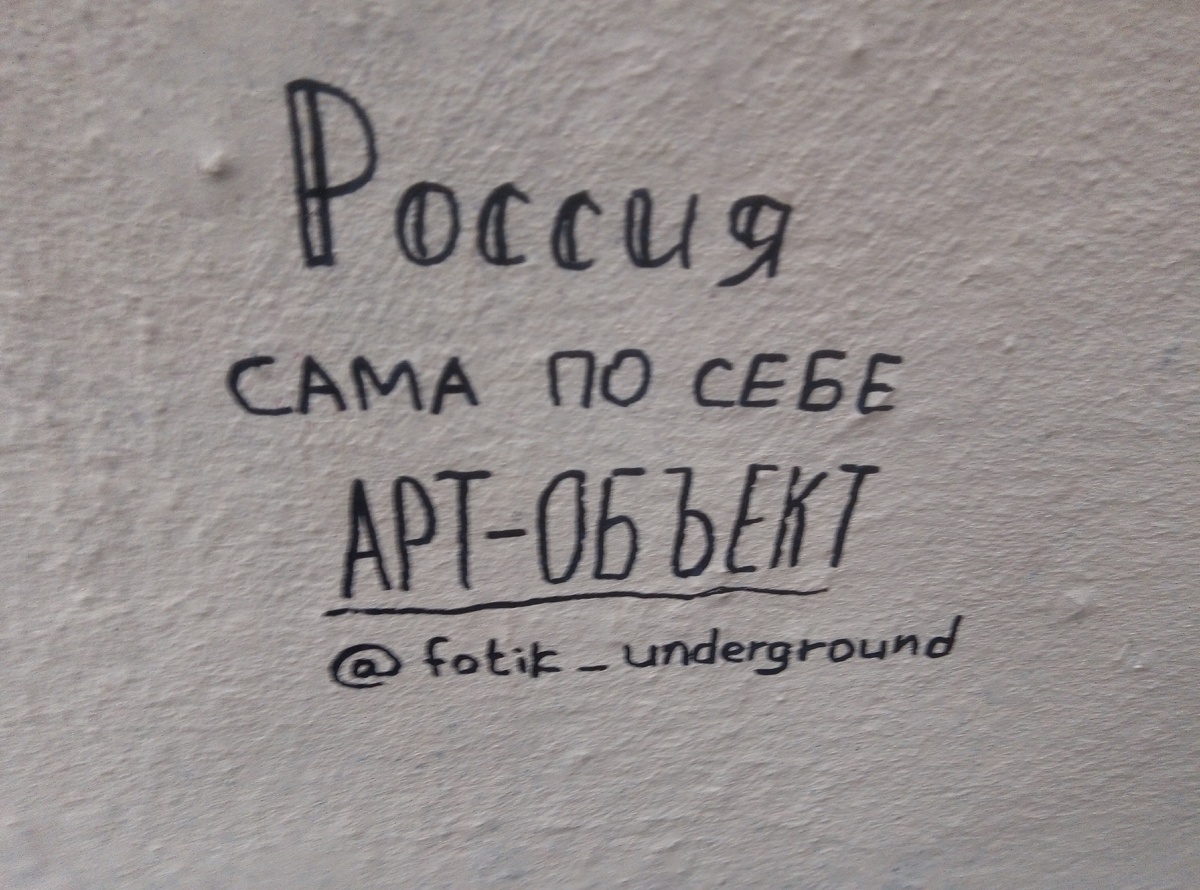 Россия
САМА ПО СЕБЕ
АРТ-ОБЪЕКТ
@fotik_underground